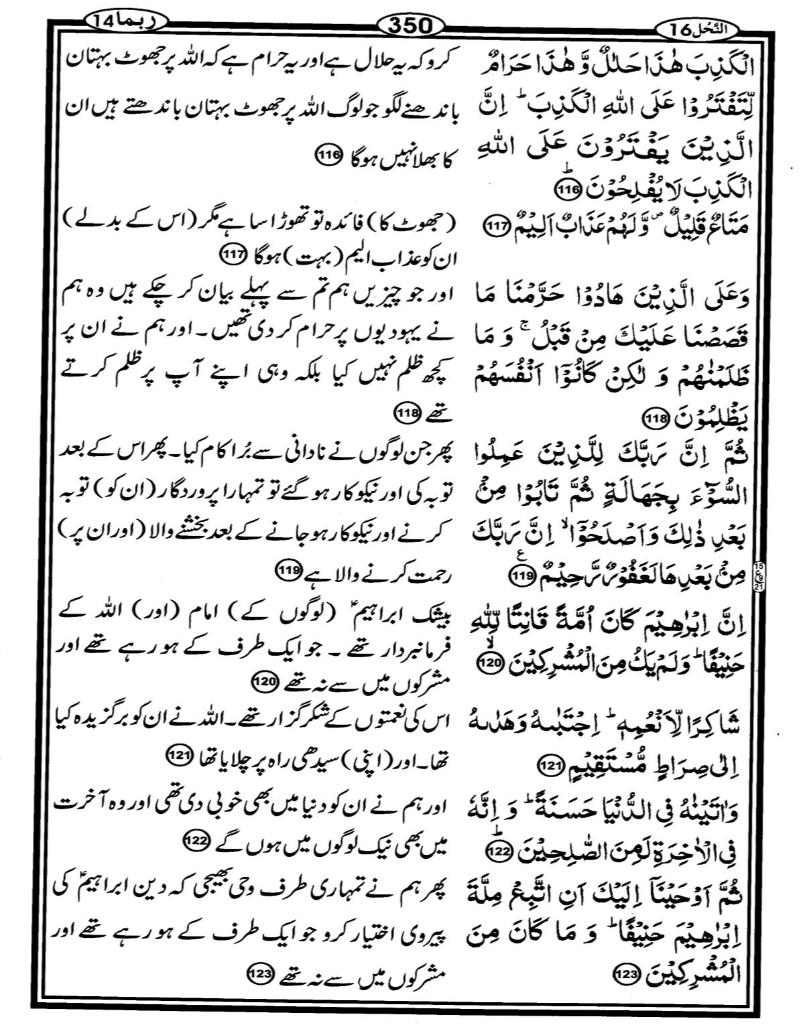 النَّحْل 16
350
ربما 14
الْكَذِبَ هٰذَا حَلٰلٌ وَّهٰذَا حَرَامٌ
لِّتَفْتَرُوْا عَلَى اللّٰهِ الْكَذِبَ ؕ اِنَّ
الَّذِيْنَ يَفْتَرُوْنَ عَلَى اللّٰهِ
الْكَذِبَ لَا يُفْلِحُوْنَ ؕ 116
مَتَاعٌ قَلِيْلٌ ۪ وَّلَهُمْ عَذَابٌ اَلِيْمٌ 117
وَعَلَى الَّذِيْنَ هَادُوْا حَرَّمْنَا مَا
قَصَصْنَا عَلَيْكَ مِنْ قَبْلُ ۚ وَ مَا
ظَلَمْنٰهُمْ وَ لٰكِنْ كَانُوْٓا اَنْفُسَهُمْ
يَظْلِمُوْنَ 118
ثُمَّ اِنَّ رَبَّكَ لِلَّذِيْنَ عَمِلُوا
السُّوْٓءَ بِجَهَالَةٍ ثُمَّ تَابُوْا مِنْۢ
بَعْدِ ذٰلِكَ وَاَصْلَحُوْٓا ۙ اِنَّ رَبَّكَ
مِنْۢ بَعْدِهَا لَغَفُوْرٌ رَّحِيْمٌ 119 ع
15 ع 21
اِنَّ اِبْرٰهِيْمَ كَانَ اُمَّةً قَانِتًا لِّلّٰهِ
حَنِيْفًا ؕ وَلَمْ يَكُ مِنَ الْمُشْرِكِيْنَ ۙ 120
شَاكِرًا لِّاَنْعُمِهٖ ؕ اِجْتَبٰىهُ وَهَدٰىهُ
اِلٰى صِرَاطٍ مُّسْتَقِيْمٍ 121
وَاٰتَيْنٰهُ فِى الدُّنْيَا حَسَنَةً ؕ وَ اِنَّهٗ
فِى الْاٰخِرَةِ لَمِنَ الصّٰلِحِيْنَ ؕ 122
ثُمَّ اَوْحَيْنَآ اِلَيْكَ اَنِ اتَّبِعْ مِلَّةَ
اِبْرٰهِيْمَ حَنِيْفًا ؕ وَ مَا كَانَ مِنَ
الْمُشْرِكِيْنَ 123
کرو کہ یہ حلال ہے اور یہ حرام ہے کہ اللہ پر جھوٹ بہتان
باندھنے لگو جو لوگ اللہ پر جھوٹ بہتان باندھتے ہیں ان
کا بھلا نہیں ہوگا 116
(جھوٹ کا) فائدہ تو تھوڑا سا ہے مگر (اس کے بدلے)
ان کو عذاب الیم (بہت) ہوگا 117
اور جو چیزیں ہم تم سے پہلے بیان کر چکے ہیں وہ ہم
نے یہودیوں پر حرام کر دی تھیں۔ اور ہم نے ان پر
کچھ ظلم نہیں کیا بلکہ وہی اپنے آپ پر ظلم کرتے
تھے 118
پھر جن لوگوں نے نادانی سے بُرا کام کیا۔ پھر اس کے بعد
توبہ کی اور نیکوکار ہو گئے تو تمہارا پروردگار (ان کو) توبہ
کرنے اور نیکوکار ہو جانے کے بعد بخشنے والا (اور ان پر)
رحمت کرنے والا ہے 119
بیشک ابراہیمؑ (لوگوں کے) امام (اور) اللہ کے
فرمانبردار تھے۔ جو ایک طرف کے ہو رہے تھے اور
مشرکوں میں سے نہ تھے 120
اس کی نعمتوں کے شکر گزار تھے۔ اللہ نے ان کو برگزیدہ کیا
تھا۔ اور (اپنی) سیدھی راہ پر چلایا تھا 121
اور ہم نے ان کو دنیا میں بھی خوبی دی تھی اور وہ آخرت
میں بھی نیک لوگوں میں ہوں گے 122
پھر ہم نے تمہاری طرف وحی بھیجی کہ دین ابراہیمؑ کی
پیروی اختیار کرو جو ایک طرف کے ہو رہے تھے اور
مشرکوں میں سے نہ تھے 123